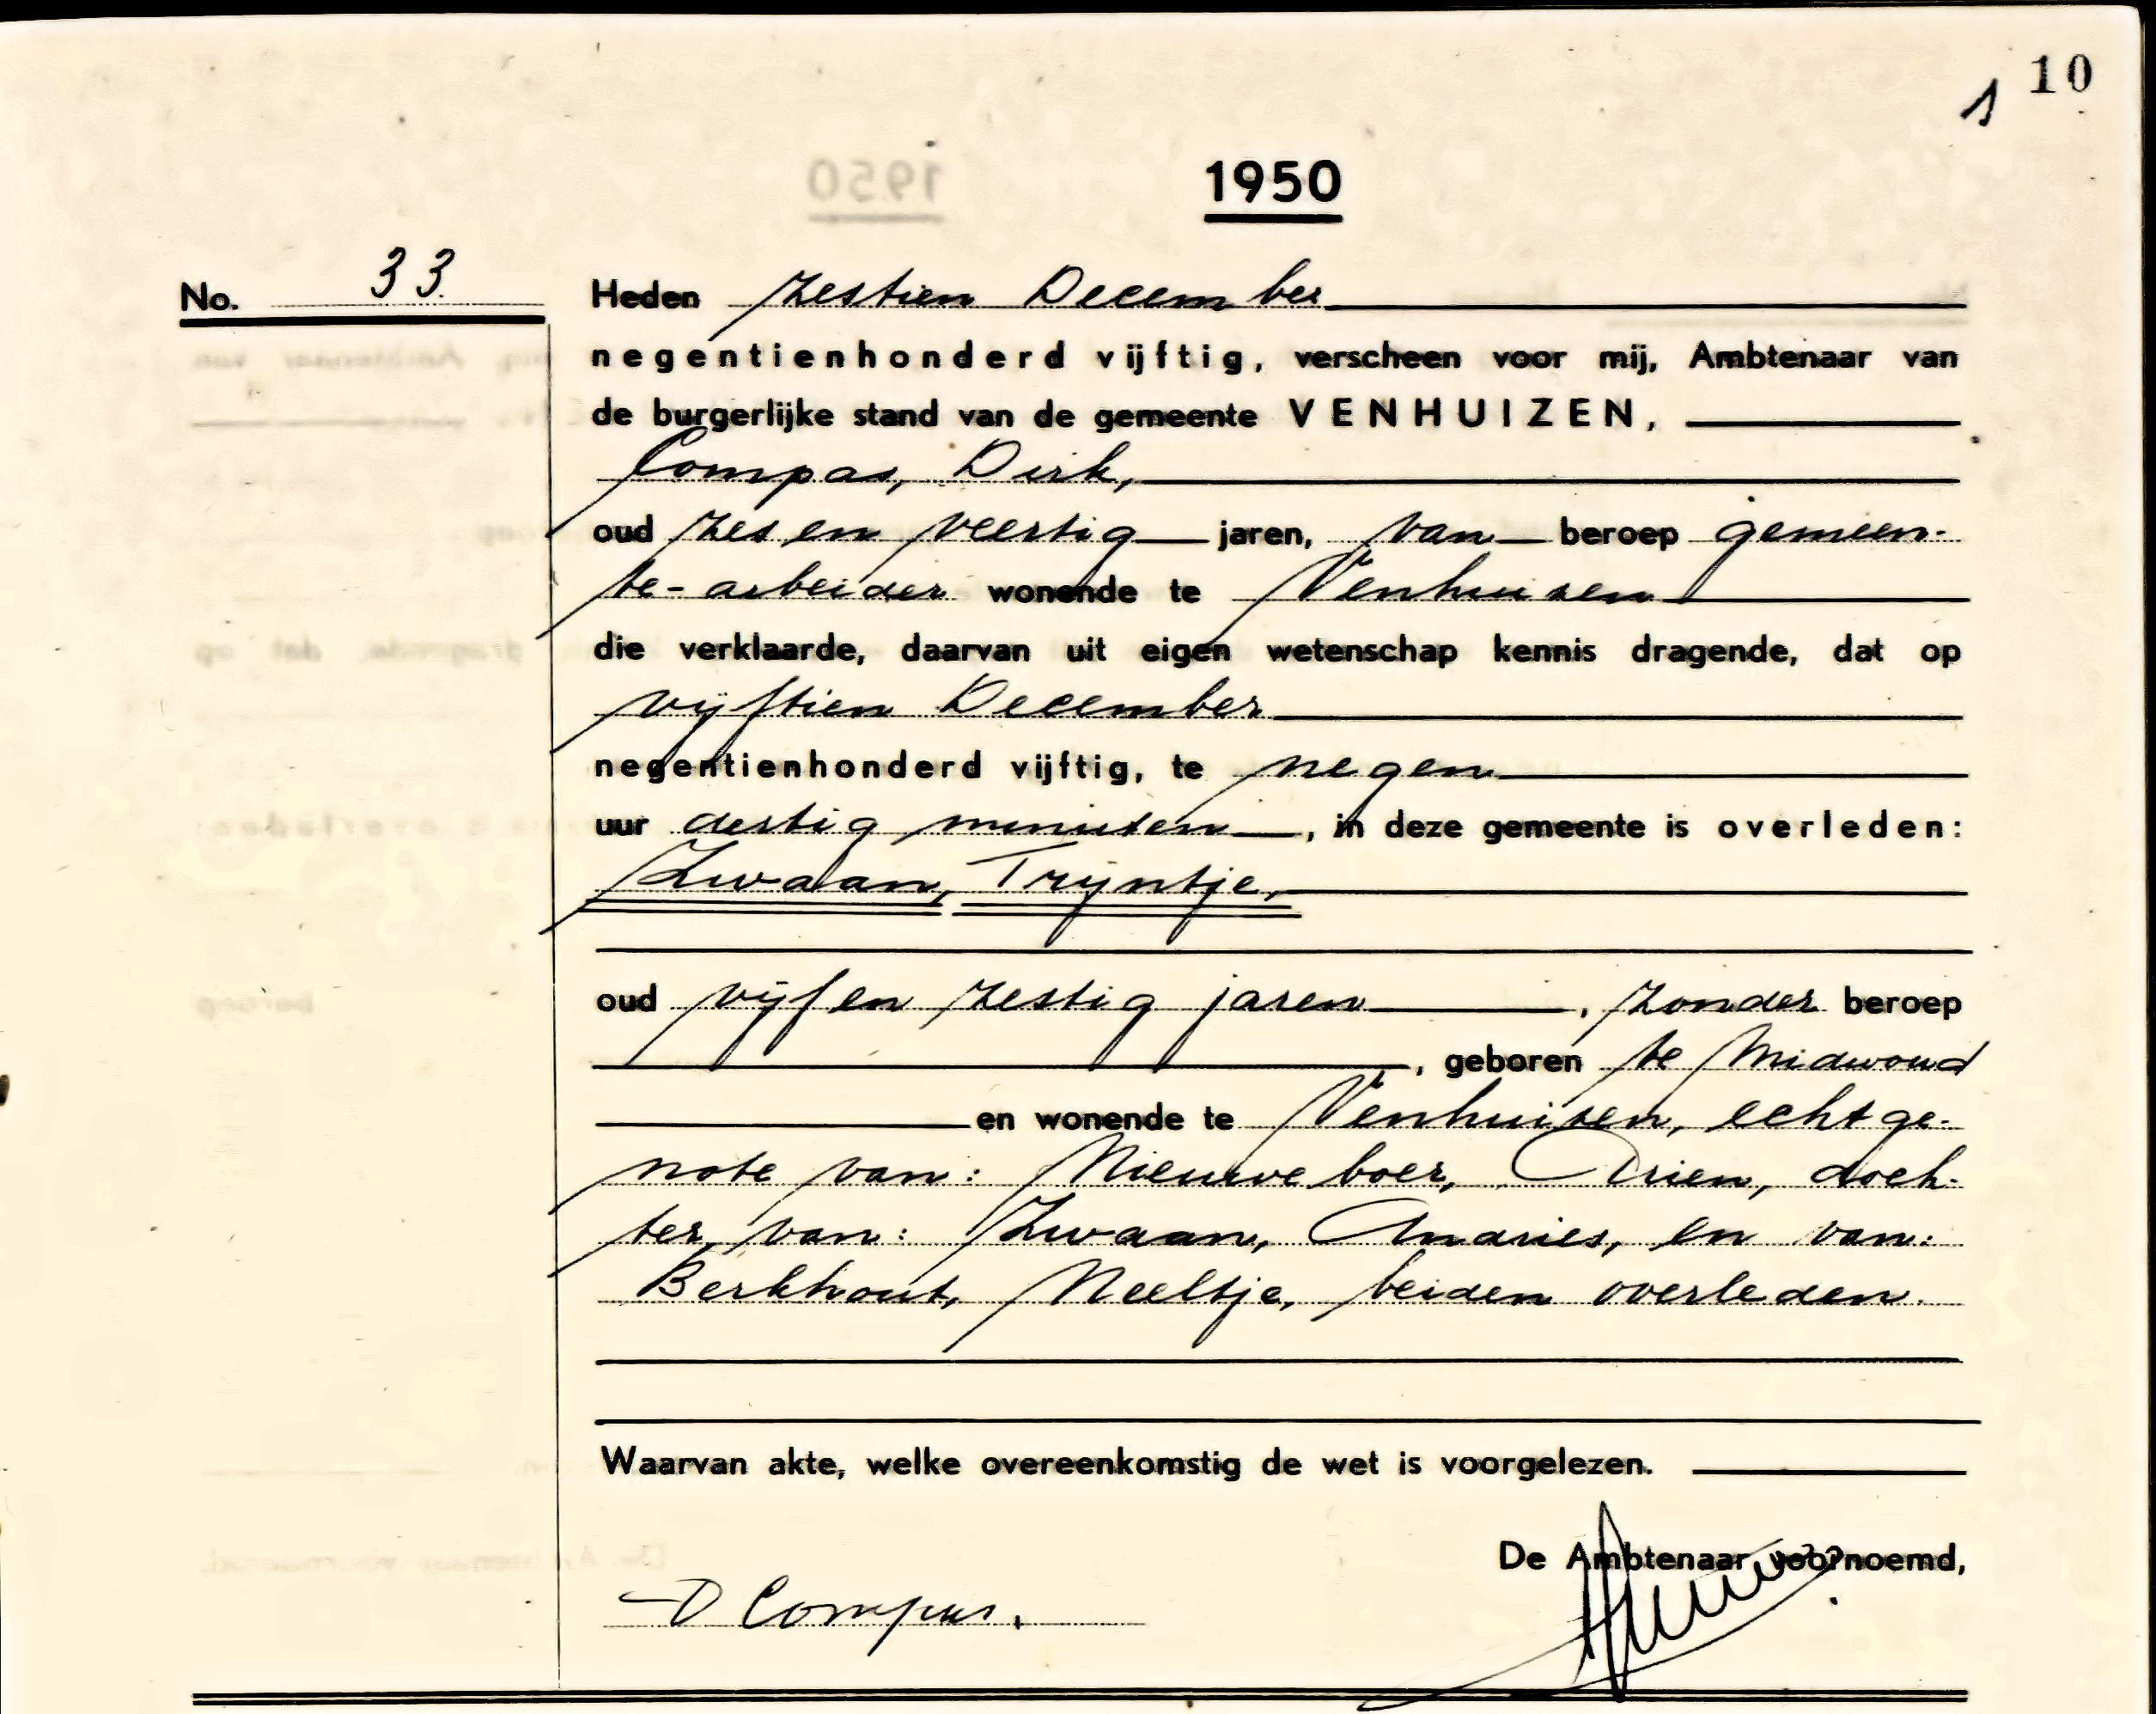 10
1
1950
No. 33
Heden zestien December
negentienhonderd vijftig, verscheen voor mij, Ambtenaar van
de burgerlijke stand van de gemeente VENHUIZEN,
Compas, Dirk,
oud zes en veertig jaren, van beroep gemeen-
te-arbeider wonende te Venhuizen
die verklaarde, daarvan uit eigen wetenschap kennis dragende, dat op
vijftien December
negentienhonderd vijftig, te negen
uur dertig minuten, in deze gemeente is overleden:
Zwaan, Trijntje,
oud vijf en zestig jaren, zonder beroep
, geboren te Midwoud
en wonende te Venhuizen, echtge-
note van: Nieuweboer, Arien, doch-
ter van: Zwaan, Andries, en van:
Berkhout, Neeltje, beiden overleden.
Waarvan akte, welke overeenkomstig de wet is voorgelezen.
De Ambtenaar voornoemd,
D Compas.